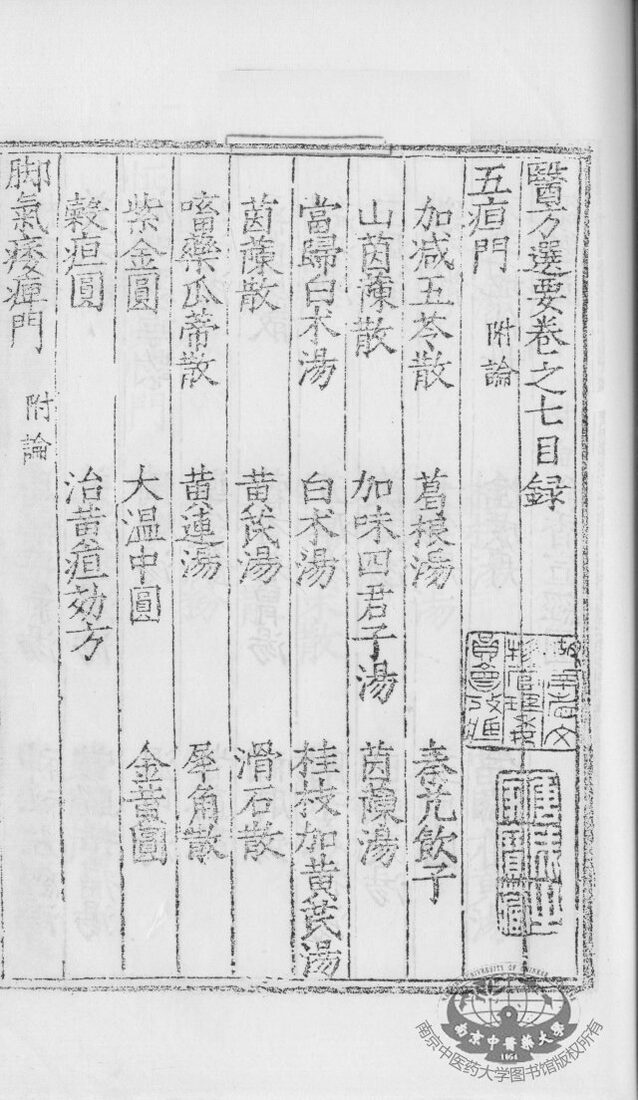 醫方選要卷之七目録
五疸門 附論
加减五苓散 葛根湯 秦艽飲子
山茵蔯散 加味四君子湯 茵蔯湯
當歸白术湯 白术湯 桂枝加黄芪湯
茵蔯散 黄芪湯 滑石散
㗜藥瓜蒂散 黄連湯 犀角散
紫金圓 大温中圓 金㙜圓
穀疸圓 治黄疸効方
脚氣痿痺門 附論
南京中醫藥大學
1954
南京中医药大学图书馆版权所有